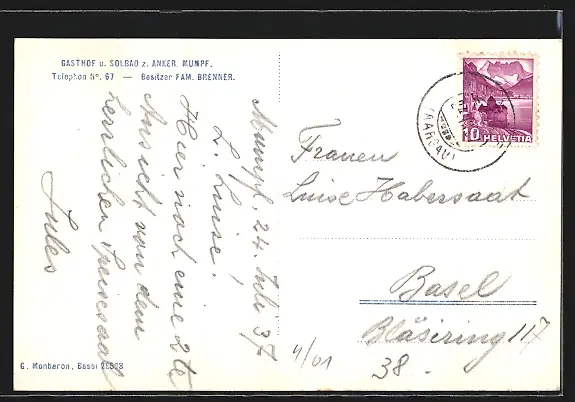 GASTHOF u. SOLBAD z. ANKER, MUMPF.
Telephon No. 67 — Besitzer FAM. BRENNER.
Mumpf, 24. Juli 37
L. Luise!
Hier noch eine 2te
Ansicht von dem
herrlichen Speisesaal
Jules
G. Monbaron, Basel
HELVETIA
10
(AARGAU)
Frauen
Luise Habersaat
Basel
Bläsiring 117
4/01
38.-